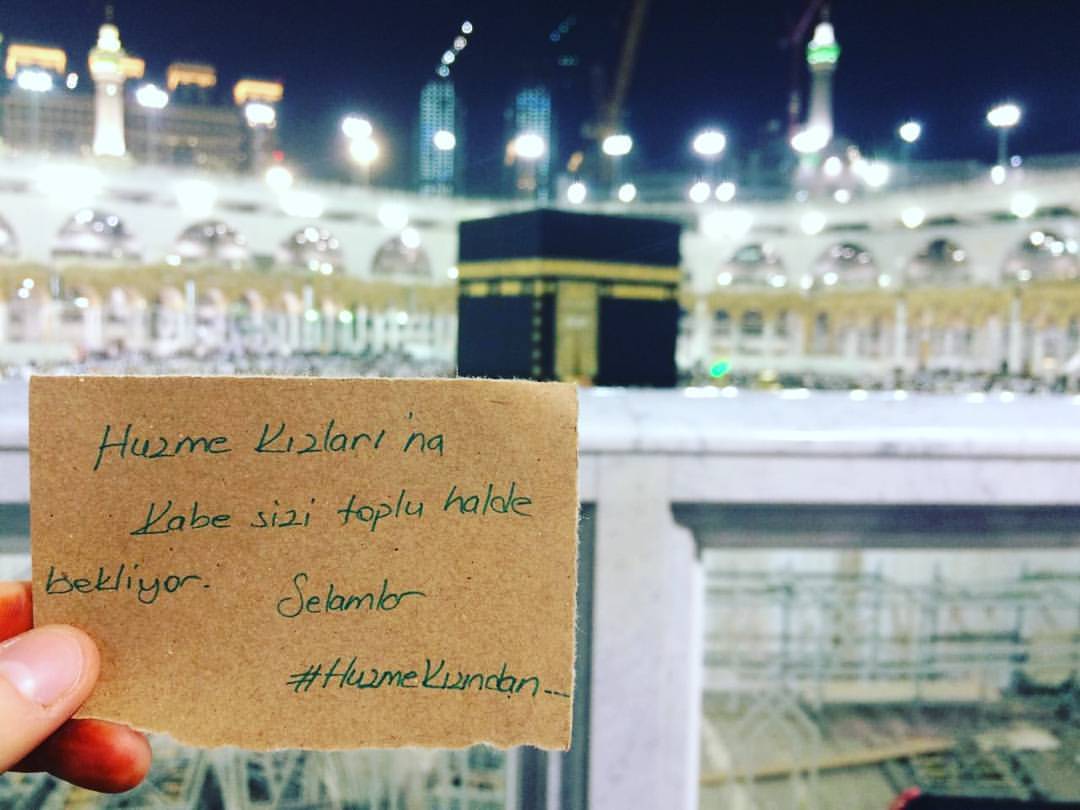 Huzme Kızları'na
Kabe sizi toplu halde
bekliyor. Selamlar
#HuzmeKızından...